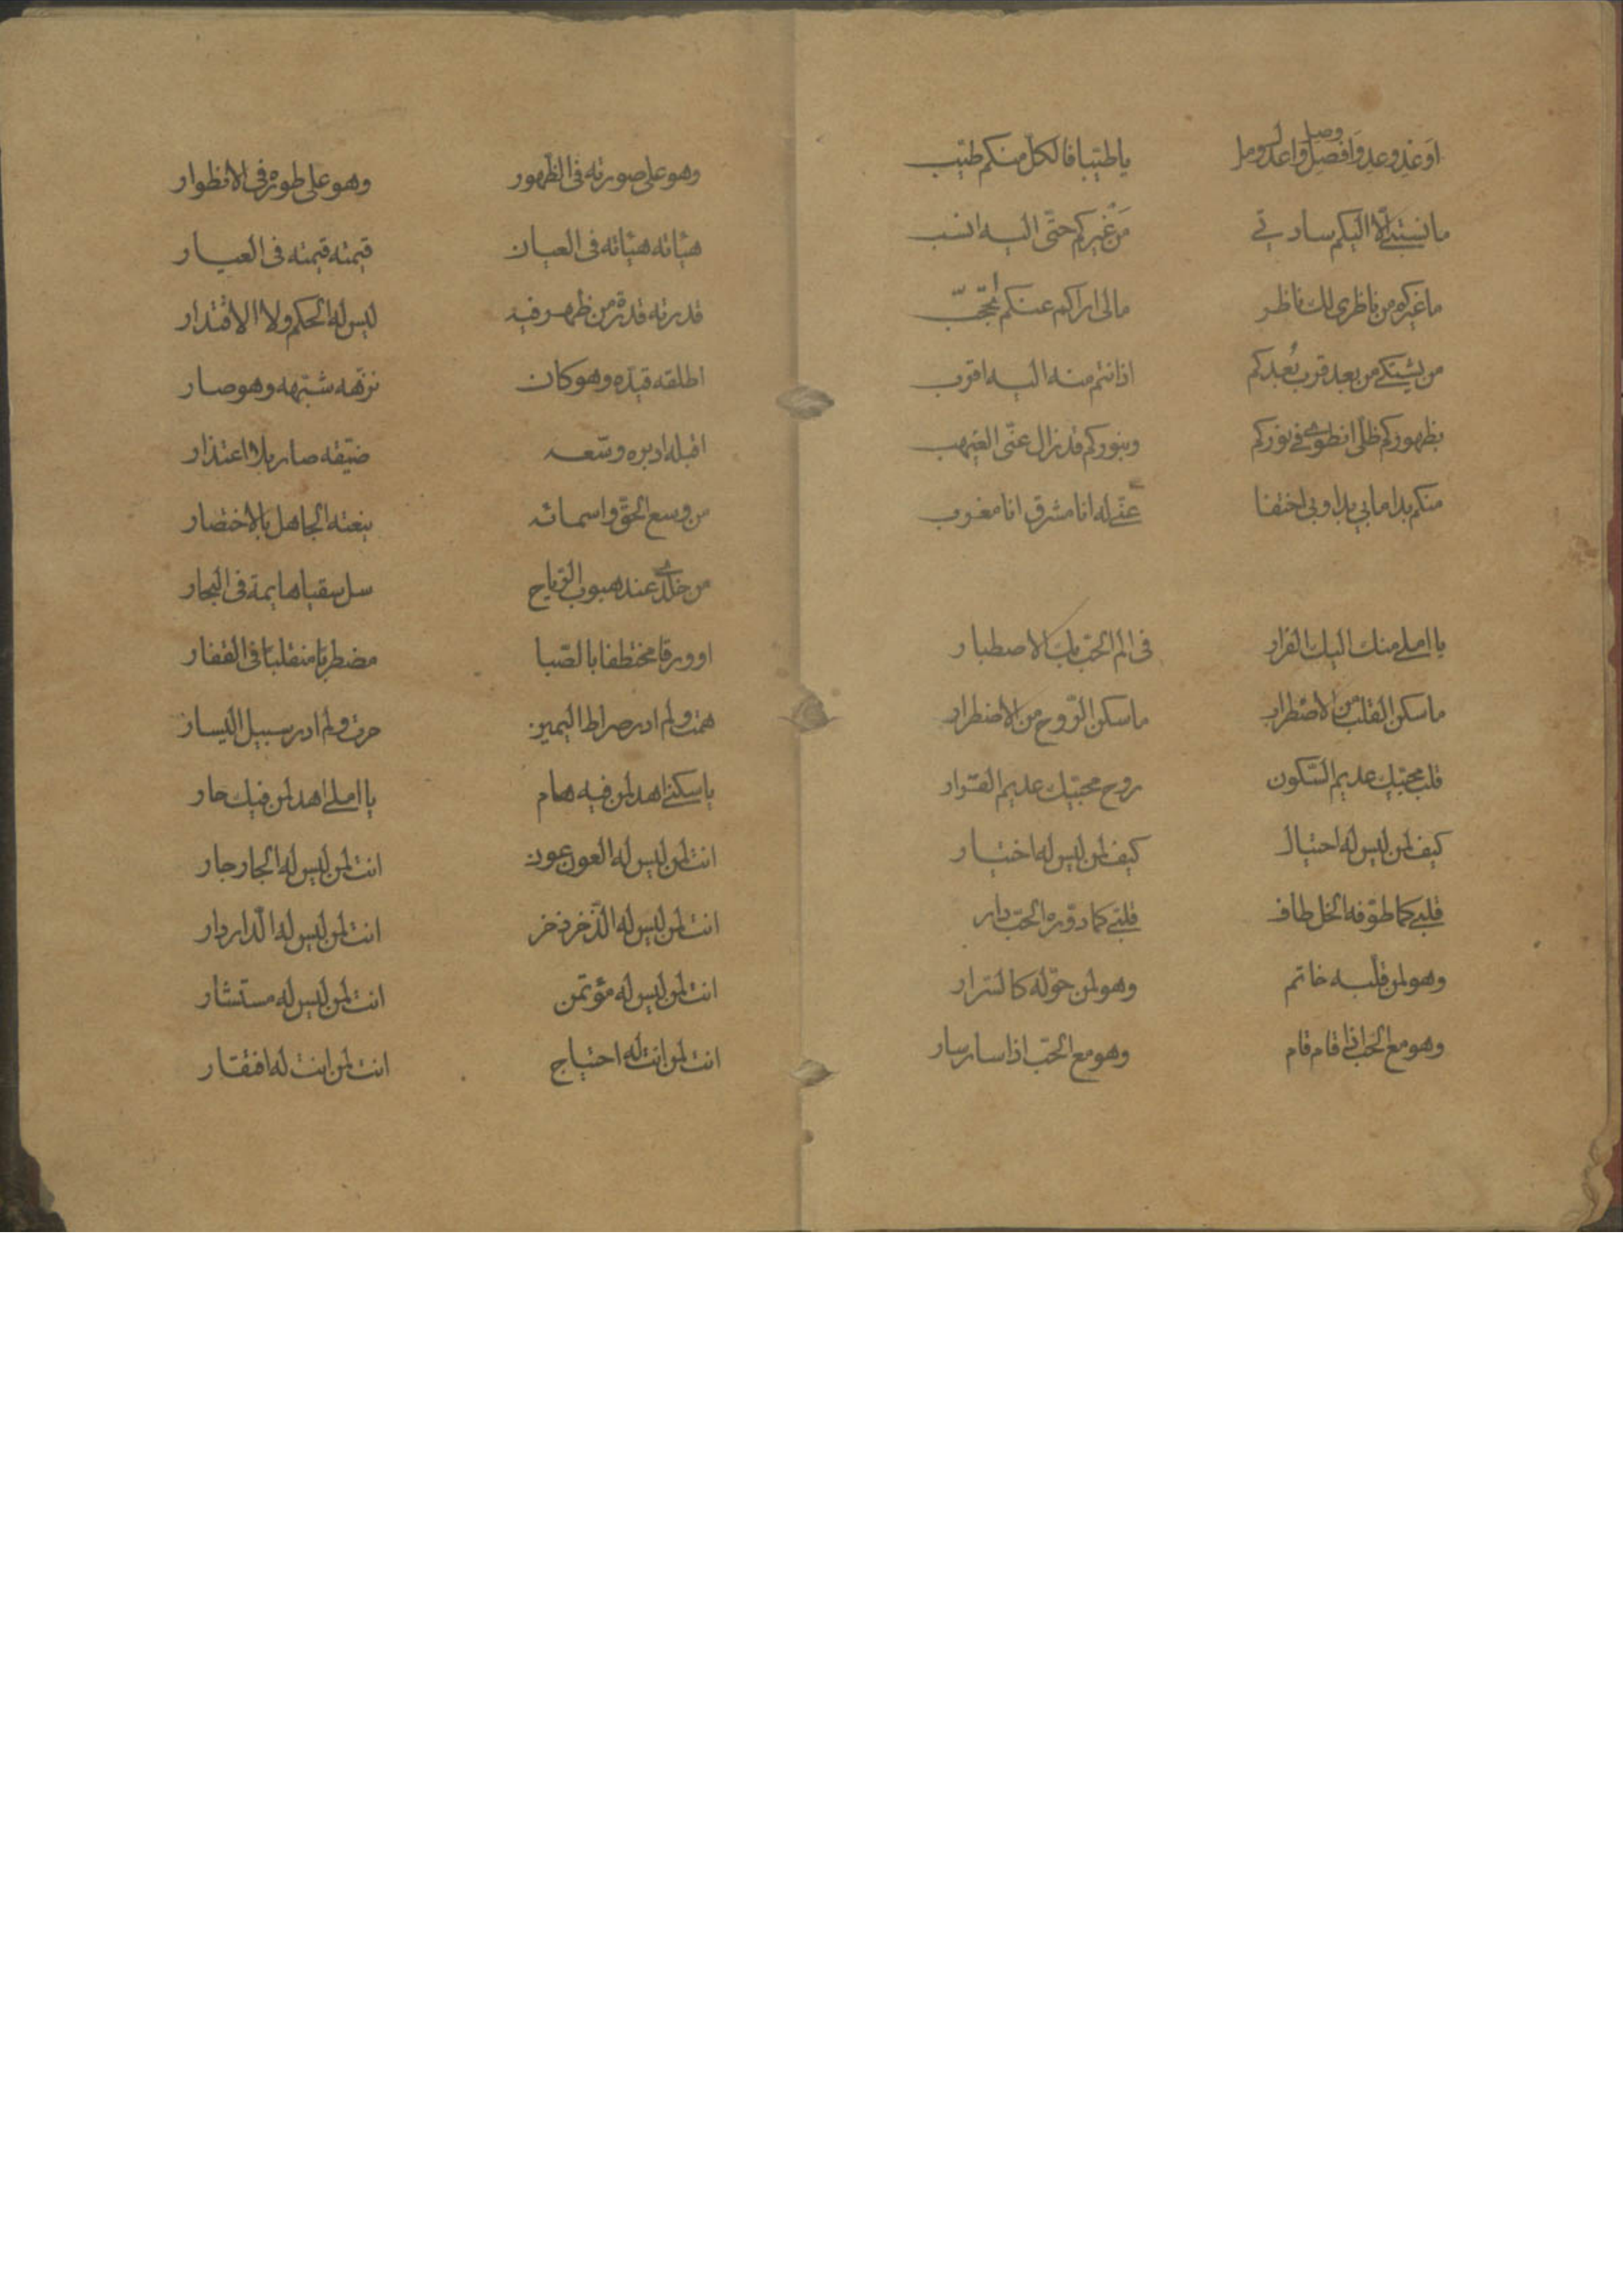 اوعد وعد وافصل وصل واعدل ومل	يا طيبا فالكل منكم طيب
ما نسبتي الا اليكم سادتي	من غيركم حتى اليه انسب
ما غيركم من ناظري لك ناظر	مالي اراكم عنكم اتحجب
من يشتكي من بعد قرب بُعدكم	اذ انتم منه اليه اقرب
بظهوركم ظلى انطوى في نوركم	وبنوركم قد زال عنّى الغيهب
منكم بدا ما بي بدا وبي اختفا	عنقى له انا مشرق انا مغرب
يا املي منك اليك الفرار	في الم الحب بك الاصطبار
ما سكن القلب من الاضطرار	ما سكن الرّوح من الاضطرار
قلب محبّيك عديم السّكون	روح محبّيك عديم القرار
كيف لمن ليس له احتيال	كيف لمن ليس له اختيار
قلبي كما طوّفه الخل طاف	قلبي كما دوّره الحبّ دار
وهو لمن قلّبه خاتم	وهو لمن حوّله كالسّرار
وهو مع الحب اذا قام قام	وهو مع الحبّ اذا سار سار
وهو على صورته في الظّهور	وهو على طوره في الانطوار
هيأته هيأته في العيان	قيمته قيمته في العيار
قدرته قدرة من ظهر فيه	ليس له الحكم ولا الاقتدار
اطلقه قيّده وهو كان	نزّهه شبّهه وهو صار
اقبله ادبره وسّعه	ضيّقه صار بلا اعتذار
من وسع الحقّ واسمائه	ينعته الجاهل بالاختصار
من خلدي عند هبوب الرّياح	سل سقيا هايمة في البحار
او ورقا مختطفا بالصّبا	مضطربا منقلبا في القفار
همت ولم ادر صراط اليمين	حرت ولم ادر سبيل اليسار
يا سكني اهد لمن فيه هام	يا املي اهد لمن فيك حار
انت لمن ليس له العون عون	انت لمن ليس له الجار جار
انت لمن ليس له الذّخر ذخر	انت لمن ليس له الدّار دار
انت لمن ليس له مؤتمن	انت لمن ليس له مستشار
انت لمن انت له احتياج	انت لمن انت له افتقار